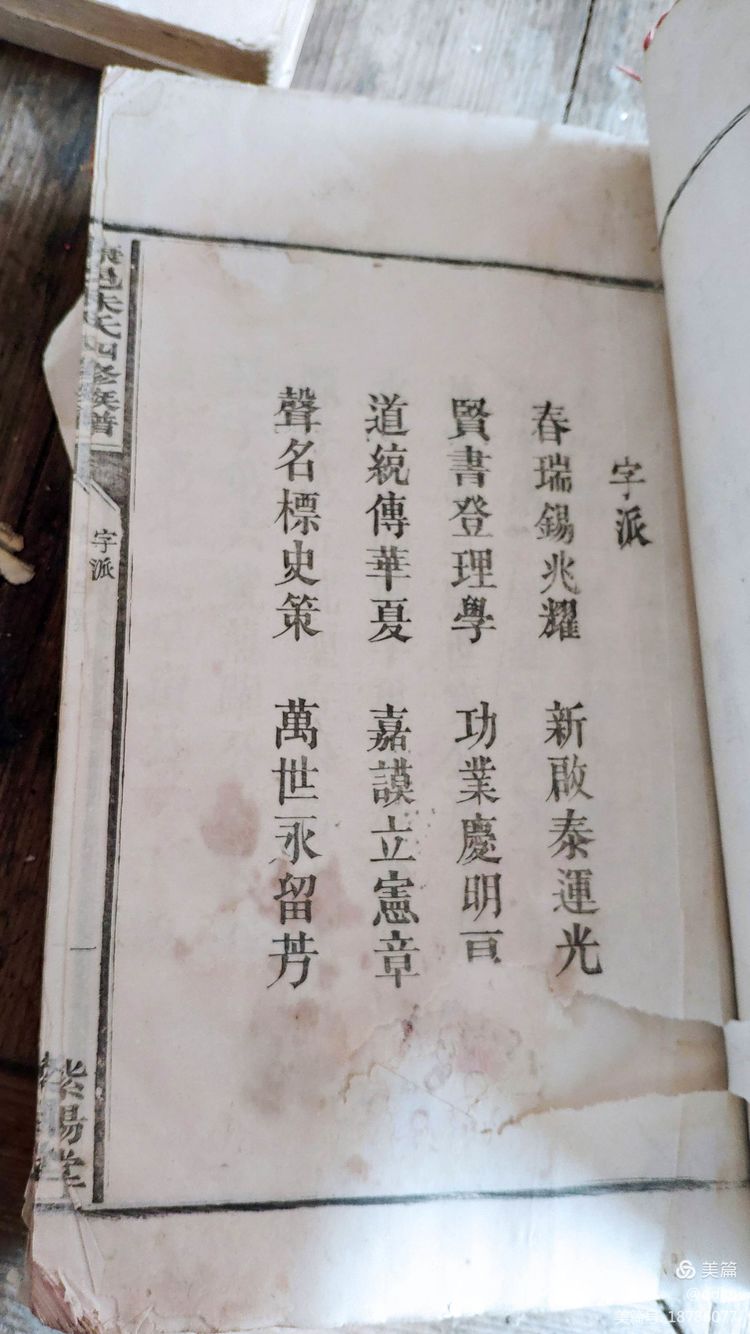 字派
春瑞錫兆耀 新啟泰運光
賢書登理學 功業慶明
道統傳華夏 嘉謨立憲章
聲名標史策 萬世永留芳
邑朱氏四修族譜
字派
一
紫陽堂
美篇